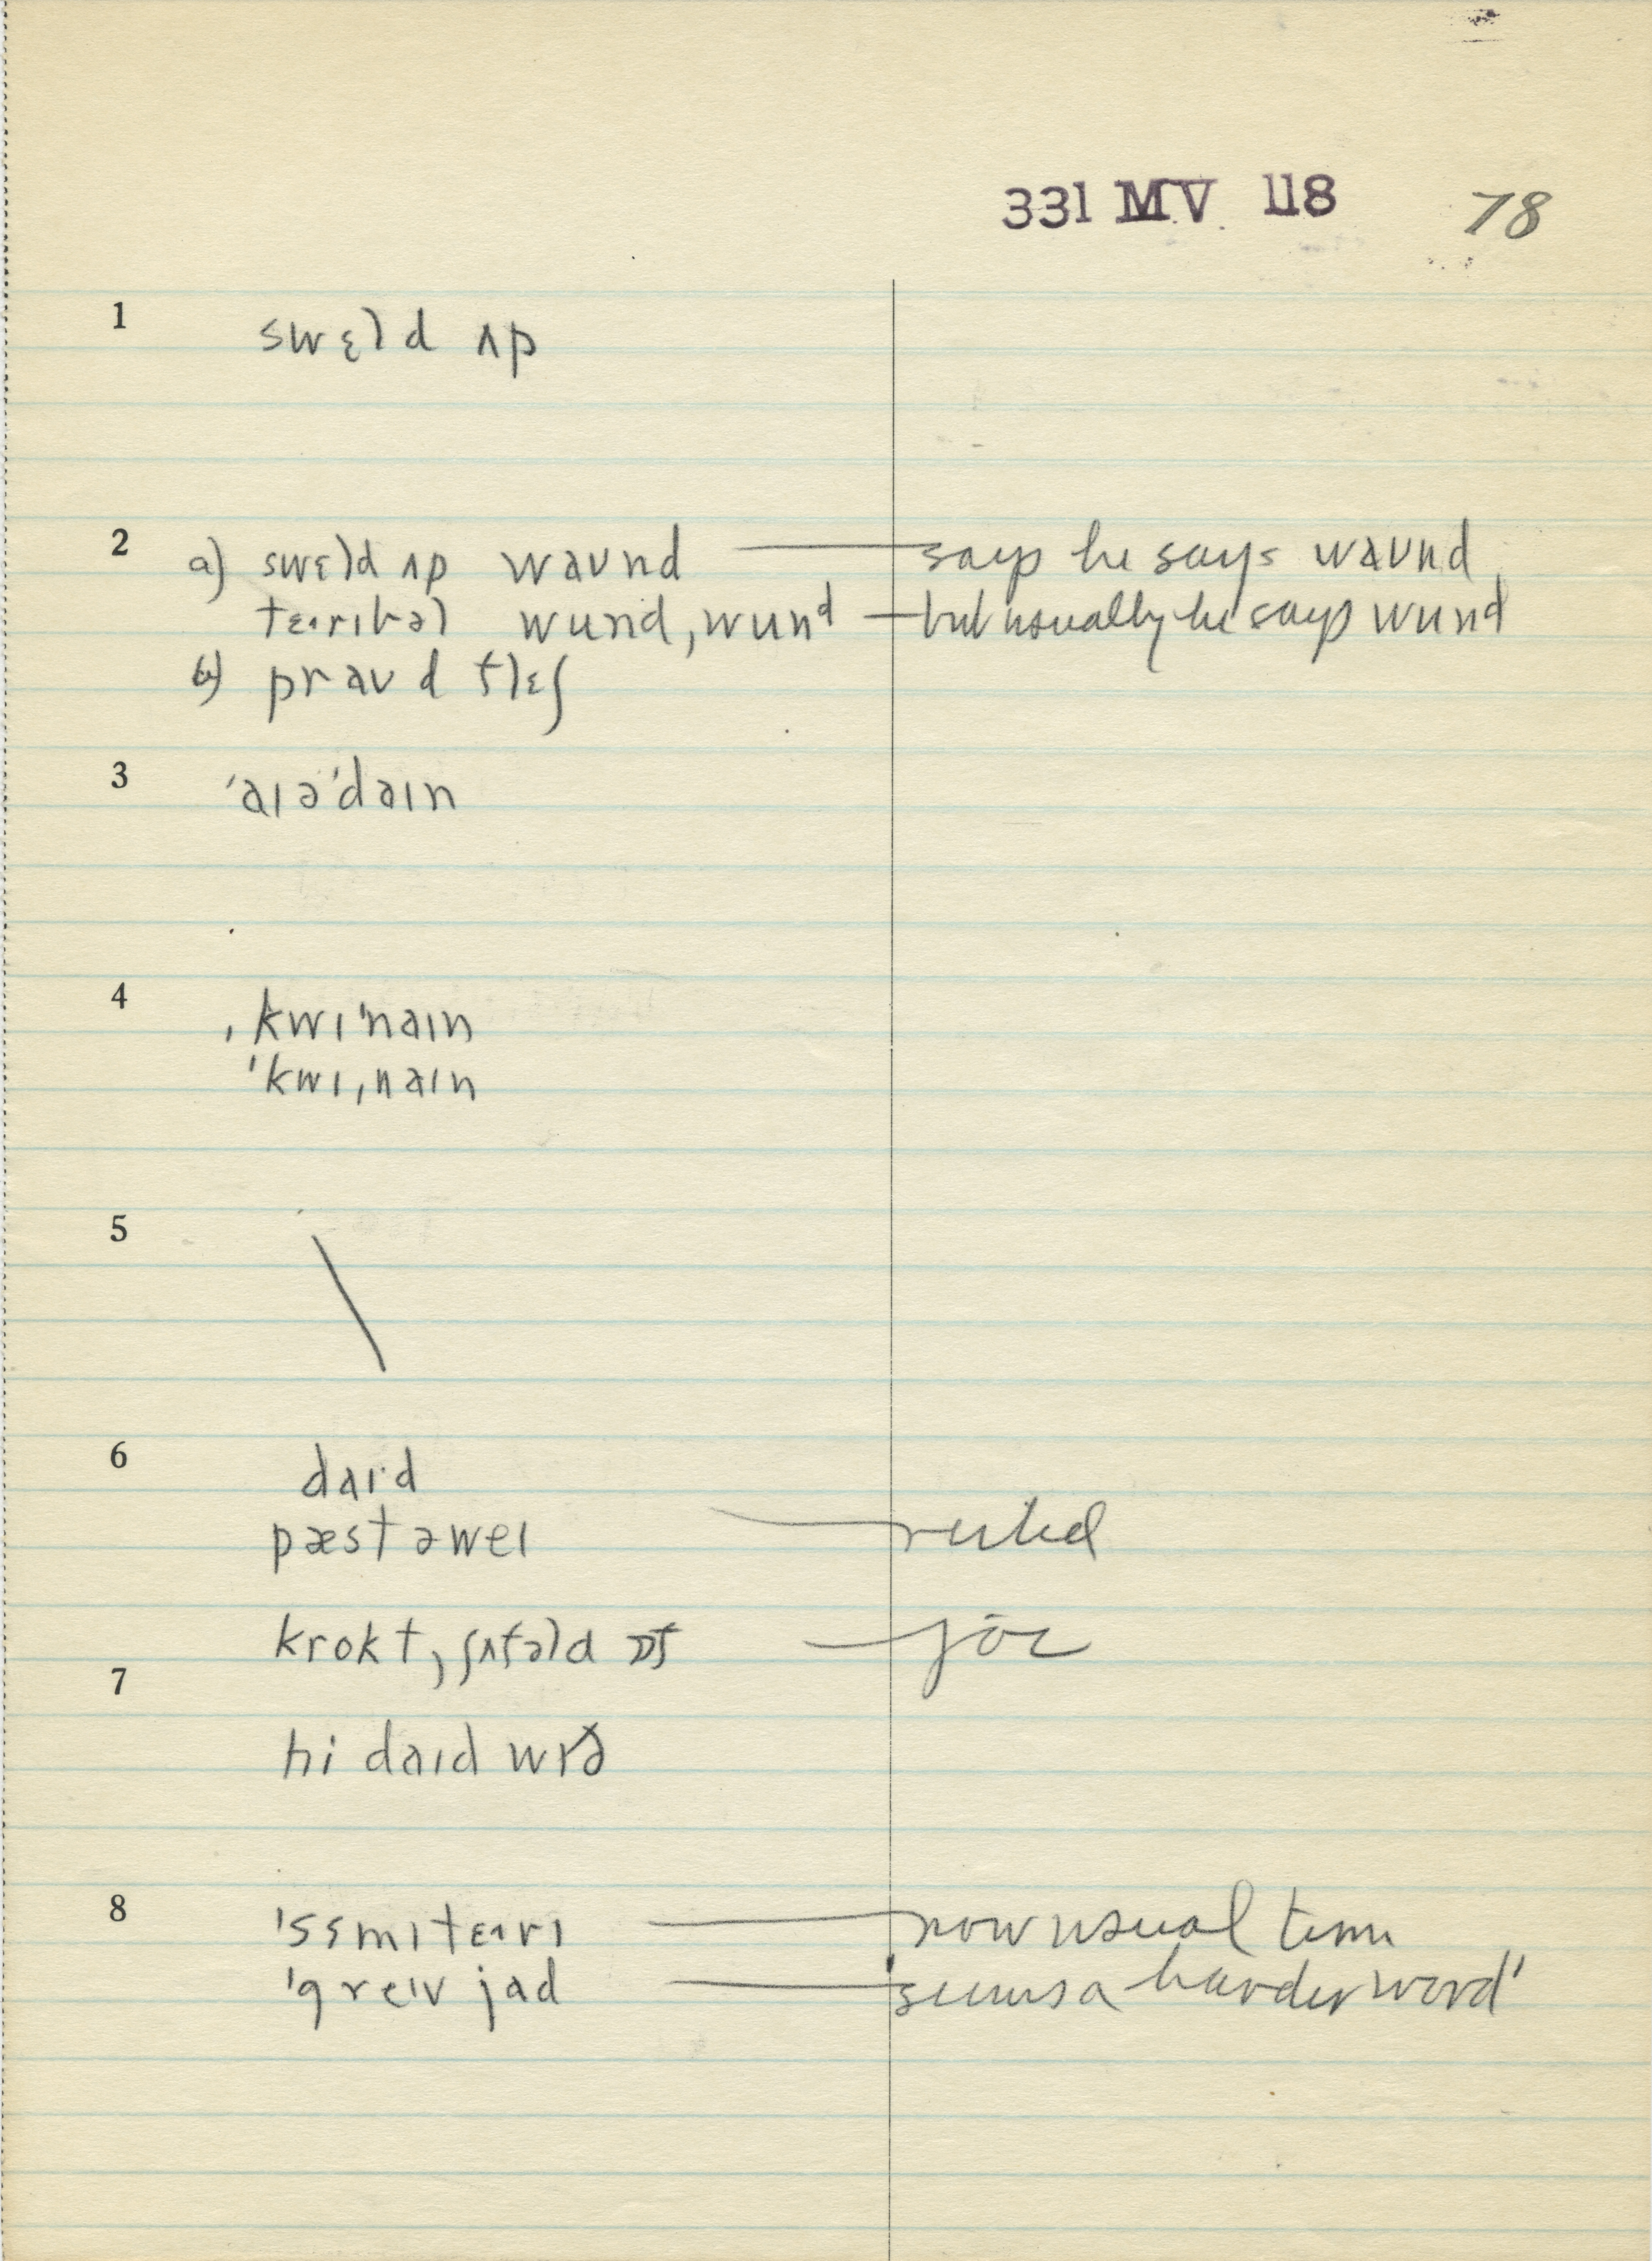 331 MV 118 78
1 swɛld ʌp
2 a) swɛld ʌp waʊnd — says he says waʊnd
wund, wund — but usually he says wund
b) praʊd flɛʃ
3 ˈaɪəˈdaɪn
4 ˌkwɪˈnaɪn
ˈkwɪˌnaɪn
5 \
6 daɪ·d
pæst əweɪ —
krokt, ʃʌfəld ɒf —
7
hi daɪd wɪð
8 ˈsɛmɪtɛ·ɪrɪ — now usual term
ˈgreɪv jad — seems a harder word'